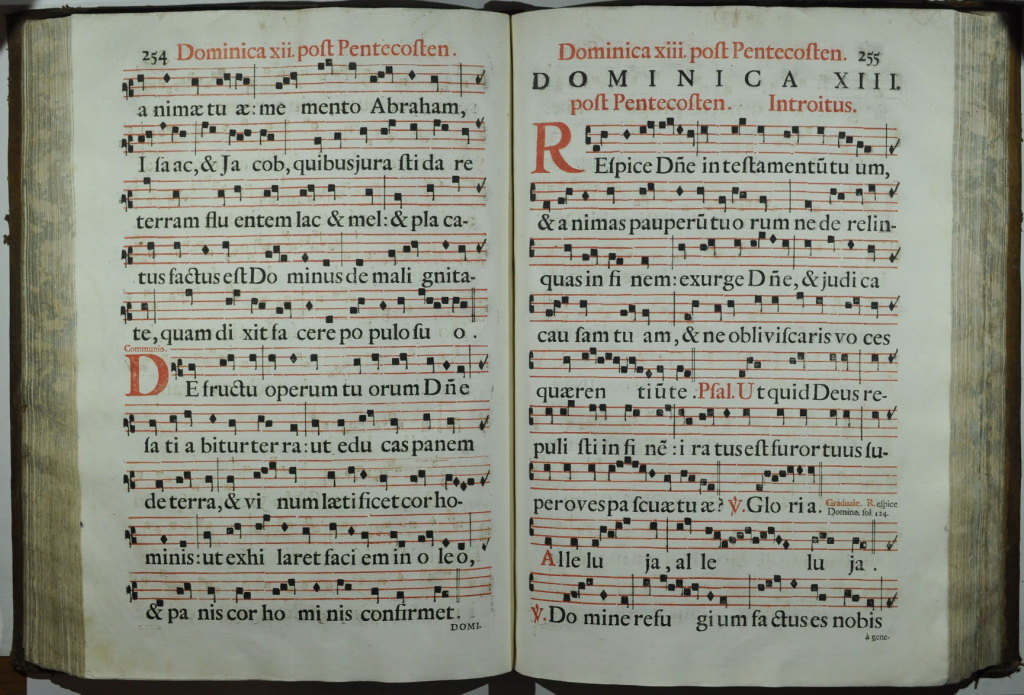 254 Dominica xii. poſt Pentecoſten.
a nimæ tu æ: me mento Abraham,
I ſa ac, & Ja cob, quibus jura ſti da re
terram flu entem lac & mel: & pla ca-
tus factus eſt Do minus de mali gnita-
te, quam di xit fa cere po pulo ſu o.
Communio.
DE fructu operum tu orum Dñe
ſa ti a bitur ter ra: ut edu cas panem
de terra, & vi num læti ficet cor ho-
minis: ut exhi laret faci em in o leo,
& pa nis cor ho mi nis confirmet.
DOMI-
Dominica xiii. poſt Pentecoſten. 255
DOMINICA XIII.
poſt Pentecoſten. Introitus.
REſpice Dñe in teſtamentū tu um,
& a nimas pauperū tu o rum ne de relin-
quas in fi nem: exurge Dñe, & judi ca
cau ſam tu am, & ne obliviſcaris vo ces
quæren tiū te. Pſal. Ut quid Deus re-
puli ſti in fi nē: i ra tus eſt furor tuus ſu-
per oves pa ſcuæ tu æ? ℣. Glo ri a. Graduale. Reſpice
Domine. fol. 124.
Alle lu ja, al le lu ja.
℣. Do mine refu gi um fa ctus es nobis
à gene-